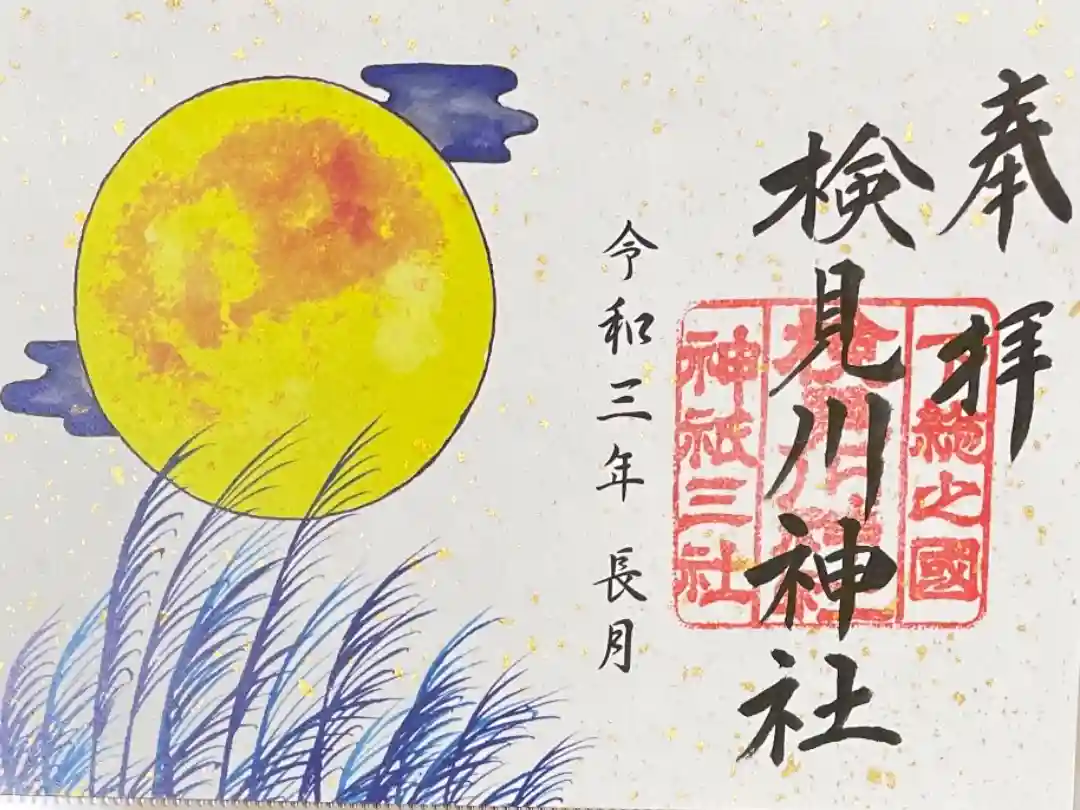 奉拝
検見川神社
下総之國
検見川神社
神祇三社
令和三年 長月